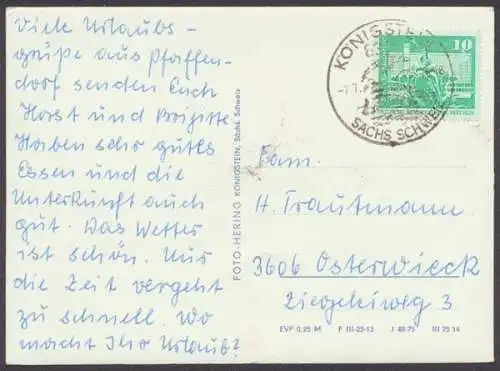 Viele Urlaubs-
grüße aus Pfaffen-
dorf senden Euch
Horst und Brigitte
Haben sehr gutes
Essen und die
Unterkunft auch
gut. Das Wetter
ist schön. Nur
die Zeit vergeht
zu schnell. Wo
macht Ihr Urlaub?
FOTO-HERING KÖNIGSTEIN, Sächs. Schweiz
KÖNIGSTEIN
SÄCHS SCHWEIZ
10
Fam.
H. Trautmann
3606 Osterwieck
Ziegeleiweg 3
EVP 0,25 M F III-23-13 J 48-75 III 25 14